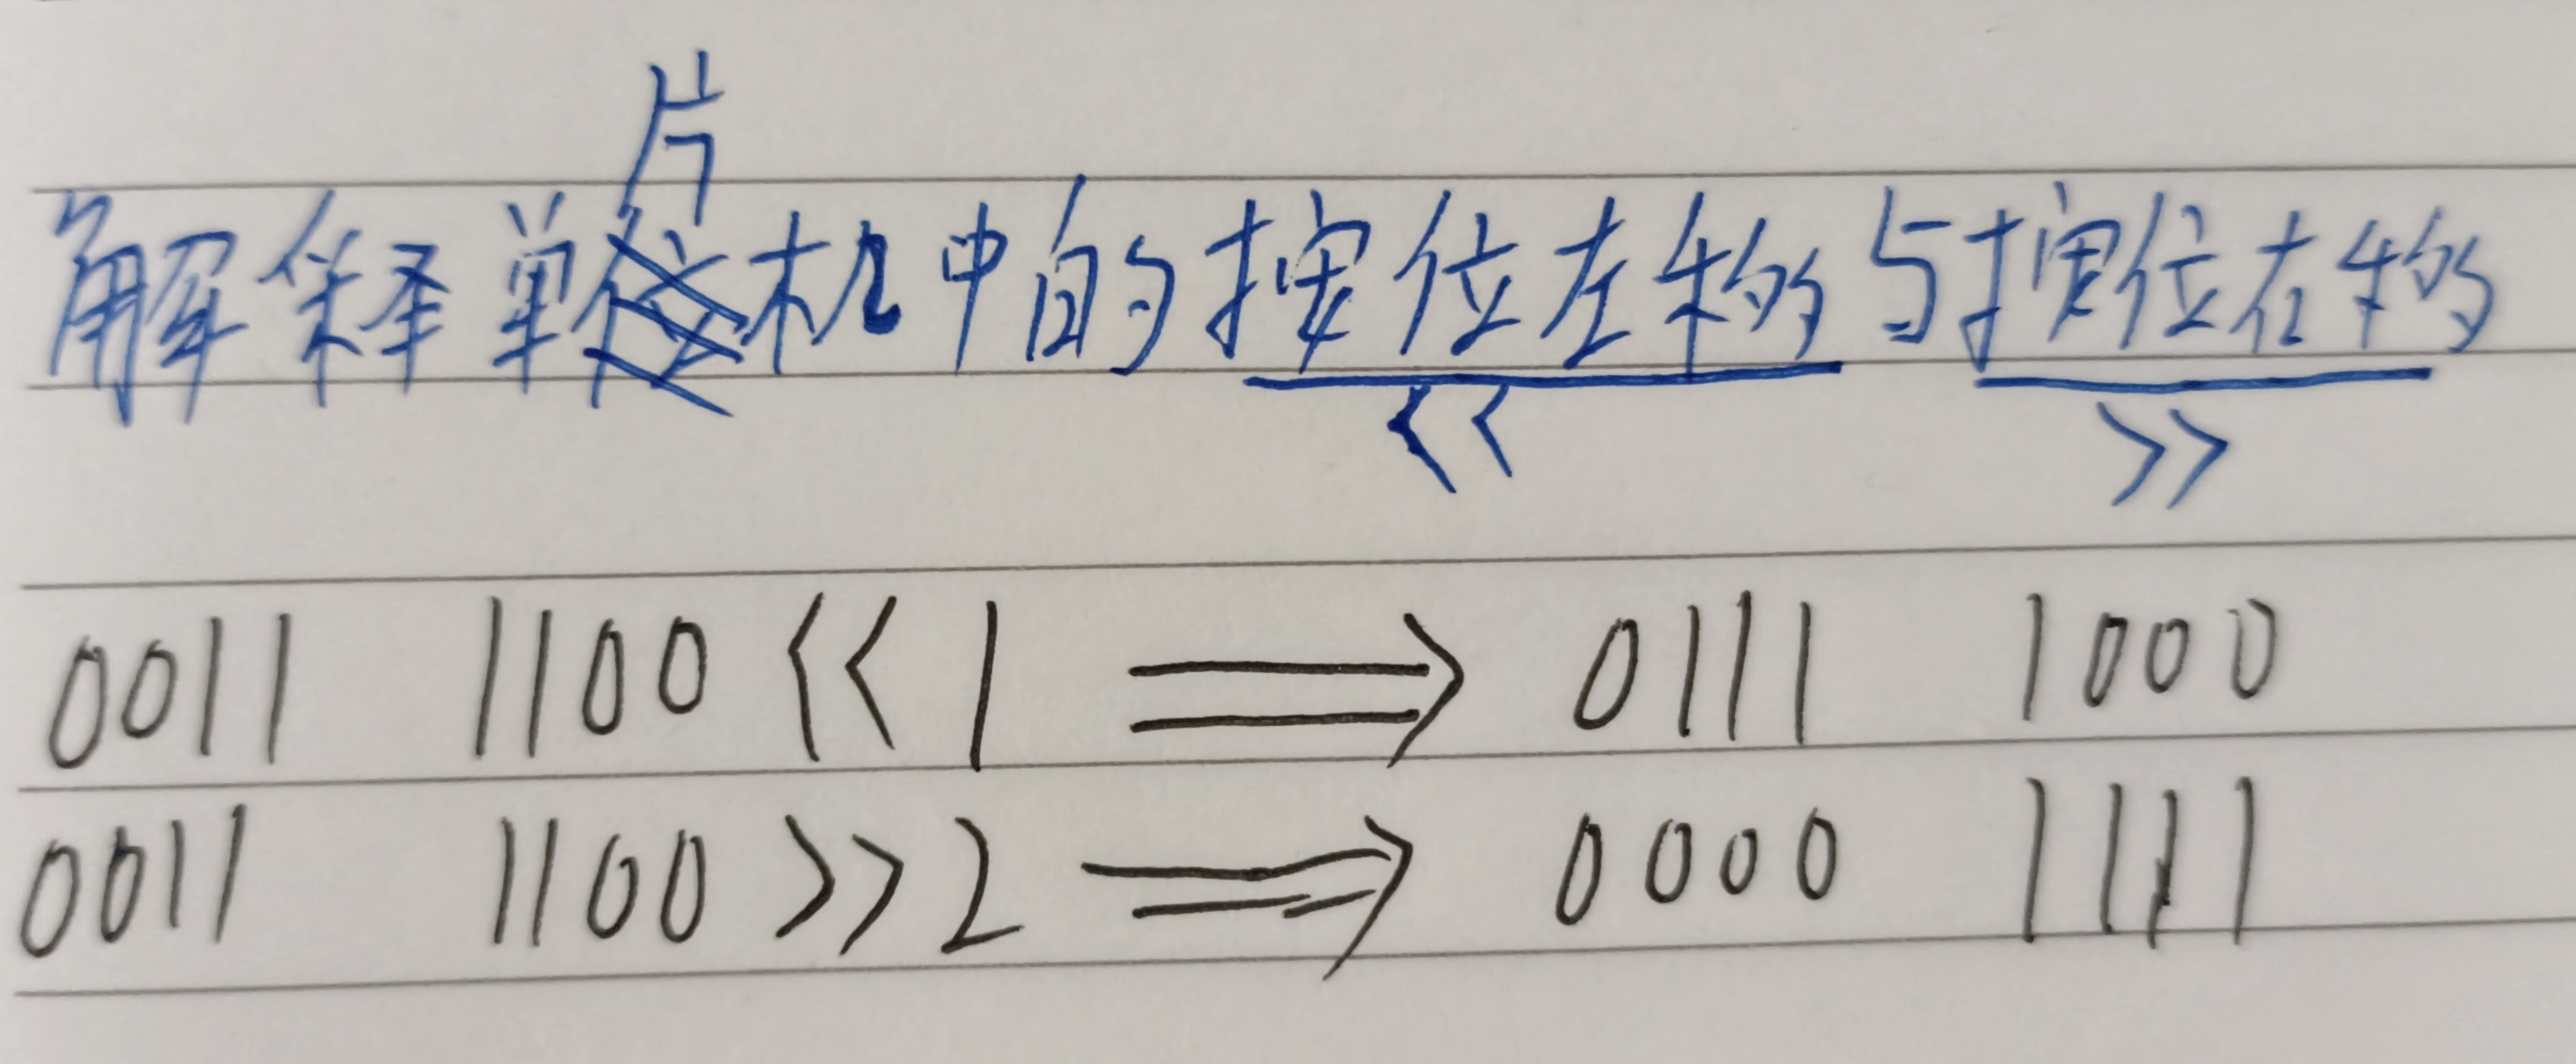 解释单片机中的按位左移与按位右移
<< >>
0011 1100 << 1 ⟹ 0111 1000
0011 1100 >> 2 ⟹ 0000 1111